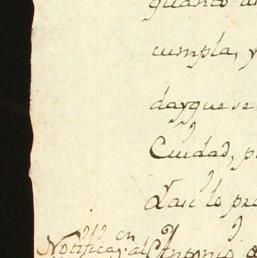 quanto
cumpla, y
dayque se
Ciudad, p
Lasi lo pro
en
Notificaz. al Antonio